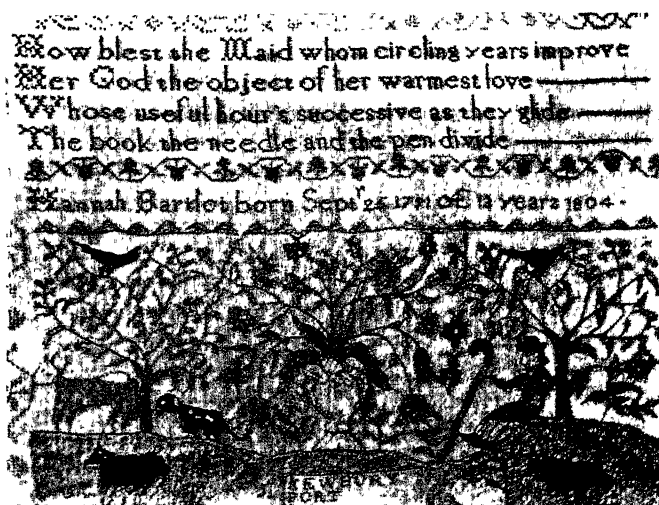 How blest the Maid whom circling years improve
Her God the object of her warmest love
Whose useful hours successive as they glide
The book the needle and the pen divide
Hannah Bartlet born Sept 1791 13 years 1804
NEWBURY
PORT